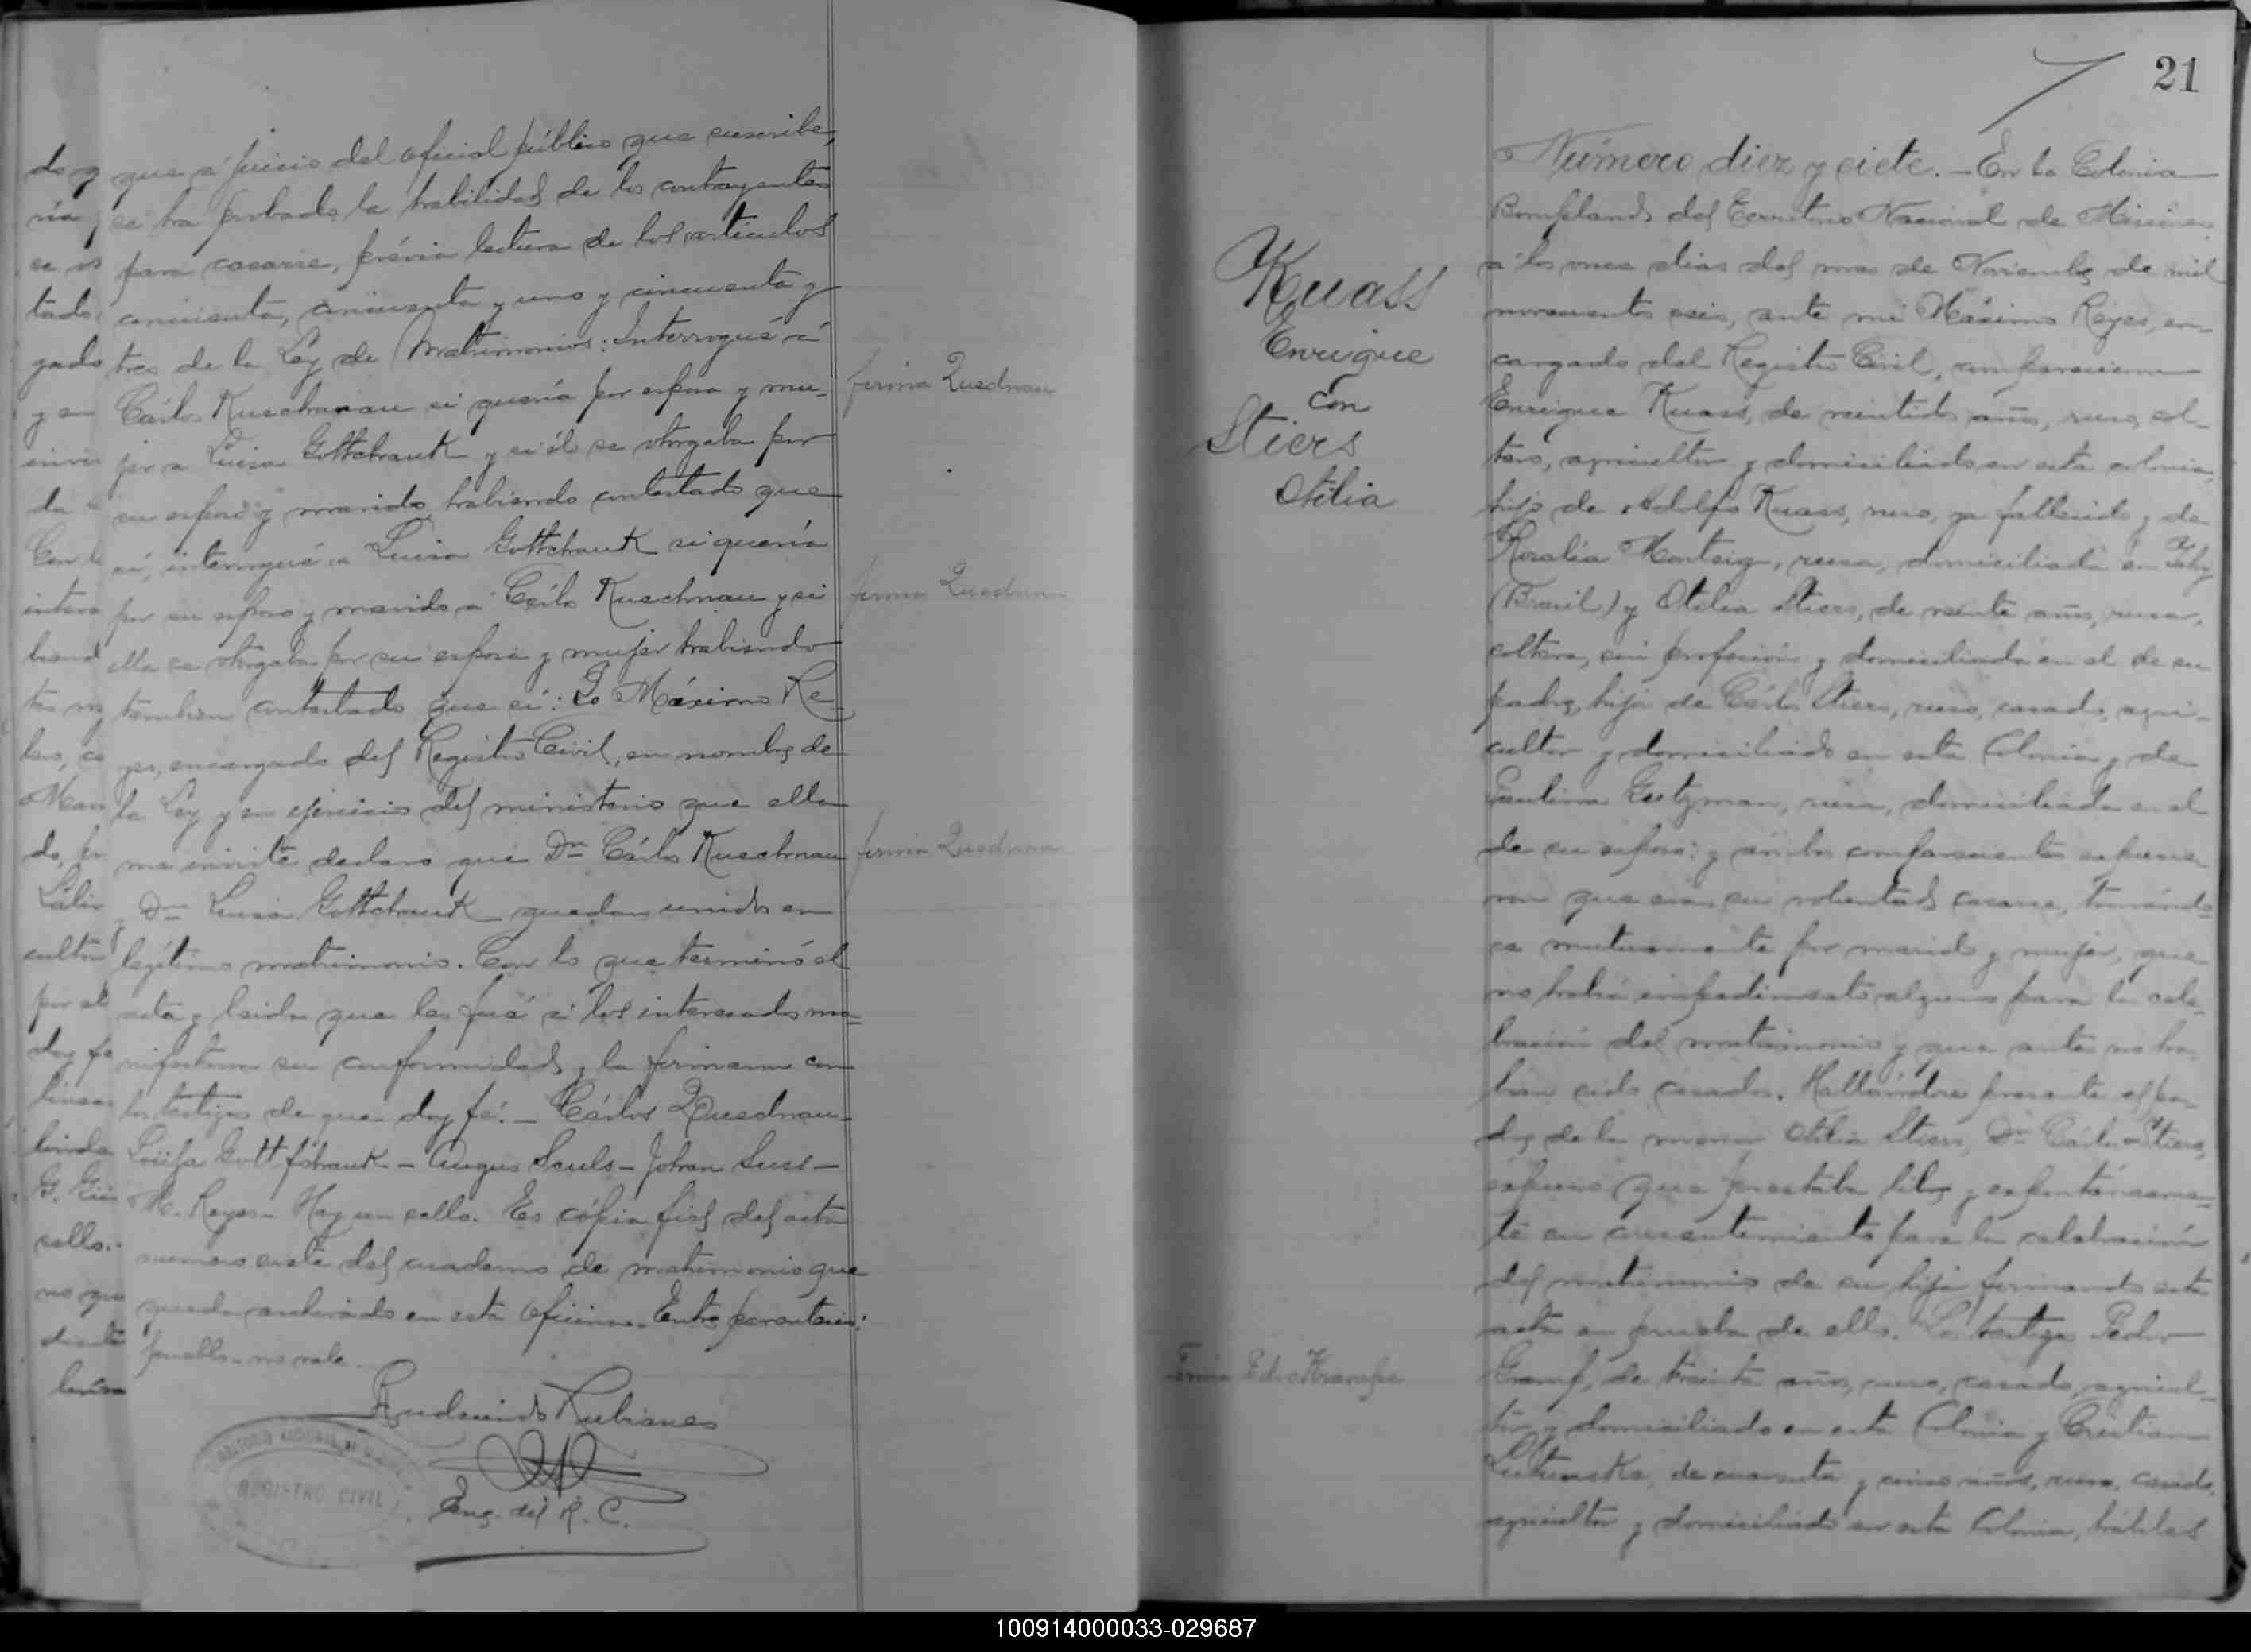 que á juicio del oficial público que suscribe,
se ha probado la habilidad de los contrayentes
para casarse, prévia lectura de los artículos
cincuenta, cincuenta y uno y cincuenta y
tres de la Ley de Matrimonios: Interrogué á
Cárlos Kuschnau si quería por esposa y mu-
jer a Luisa Gottchauk y si él se otorgaba por
su esposo y marido, habiendo contestado que
sí, interrogué a Luisa Gottchauk si quería
por su esposo y marido a Cárlos Kuschnau y si
ella se otorgaba por su esposa y mujer habiendo
tambien contestado que sí: Yo Máximo Re-
yes, encargado del Registro Civil, en nombre de
la Ley y en ejercicio del ministerio que ella
me declaro que Dn Cárlos Kuschnau
y Dña Luisa Gottchauk quedan unidos en
legítimo matrimonio. Con lo que terminó el
acta y leida que les fué á los interesados ma-
nifestaron su conformidad y la firmaron con
los testigos de que doy fé. - Cárlos Quednau -
Louisa Gottfshauk - Augus Sauls - Johan Suss -
M. Reyes - Hay un sello. Es cópia fiel del acta
número siete del cuaderno de matrimonios que
queda archivado en esta oficina. Entre parentesis:
no vale.
Rudecindo Rubianes
Enc. del R. C.
REGISTRO CIVIL
firma Quednau
firma Quednau
firma Quednau
21
Kuass
Enrique
con
Stiers
Otilia
Firma Pedro Krampe
Número diez y siete. - En la Colonia
Bompland, del Territorio Nacional de Misiones
á los once dias del mes de Noviembre de mil
novecientos seis, ante mi Máximo Reyes, en-
cargado del Registro Civil, comparecieron
Enrique Kuass, de veintidos años, ruso, sol-
tero, agricultor y domiciliado en esta colonia,
hijo de Adolfo Kuass, ruso, ya fallecido y de
Rosalía Monteig, rusa, domiciliada en
(Brasil) y Otilia Stiers, de veinte años, rusa,
soltera, sin profesión y domiciliada en el de su
padre, hija de Cárlos Stiers, ruso, casado, agri-
cultor y domiciliado en esta Colonia y de
Paulina Gutzman, rusa, domiciliada en el
de su esposo: y ámbos comparecientes expusie-
ron que era su voluntad casarse, tomándo-
se mutuamente por marido y mujer, que
no había impedimento alguno para la cele-
bración del matrimonio y que antes no ha-
bían sido casados. Hallándose presente el pa-
dre de la menor Otilia Stiers, Dn Cárlos Stiers,
expuso que prestaba libre y espontáneamen-
te su consentimiento para la celebración
del matrimonio de su hija firmando esta
acta en prueba de ello. Los testigos Pedro
Gramp, de treinta años, ruso, casado, agricul-
tor y domiciliado en esta Colonia y Cristian
de cuarenta y cinco años, ruso, casado,
agricultor y domiciliado en esta Colonia, hábiles
100914000033-029687